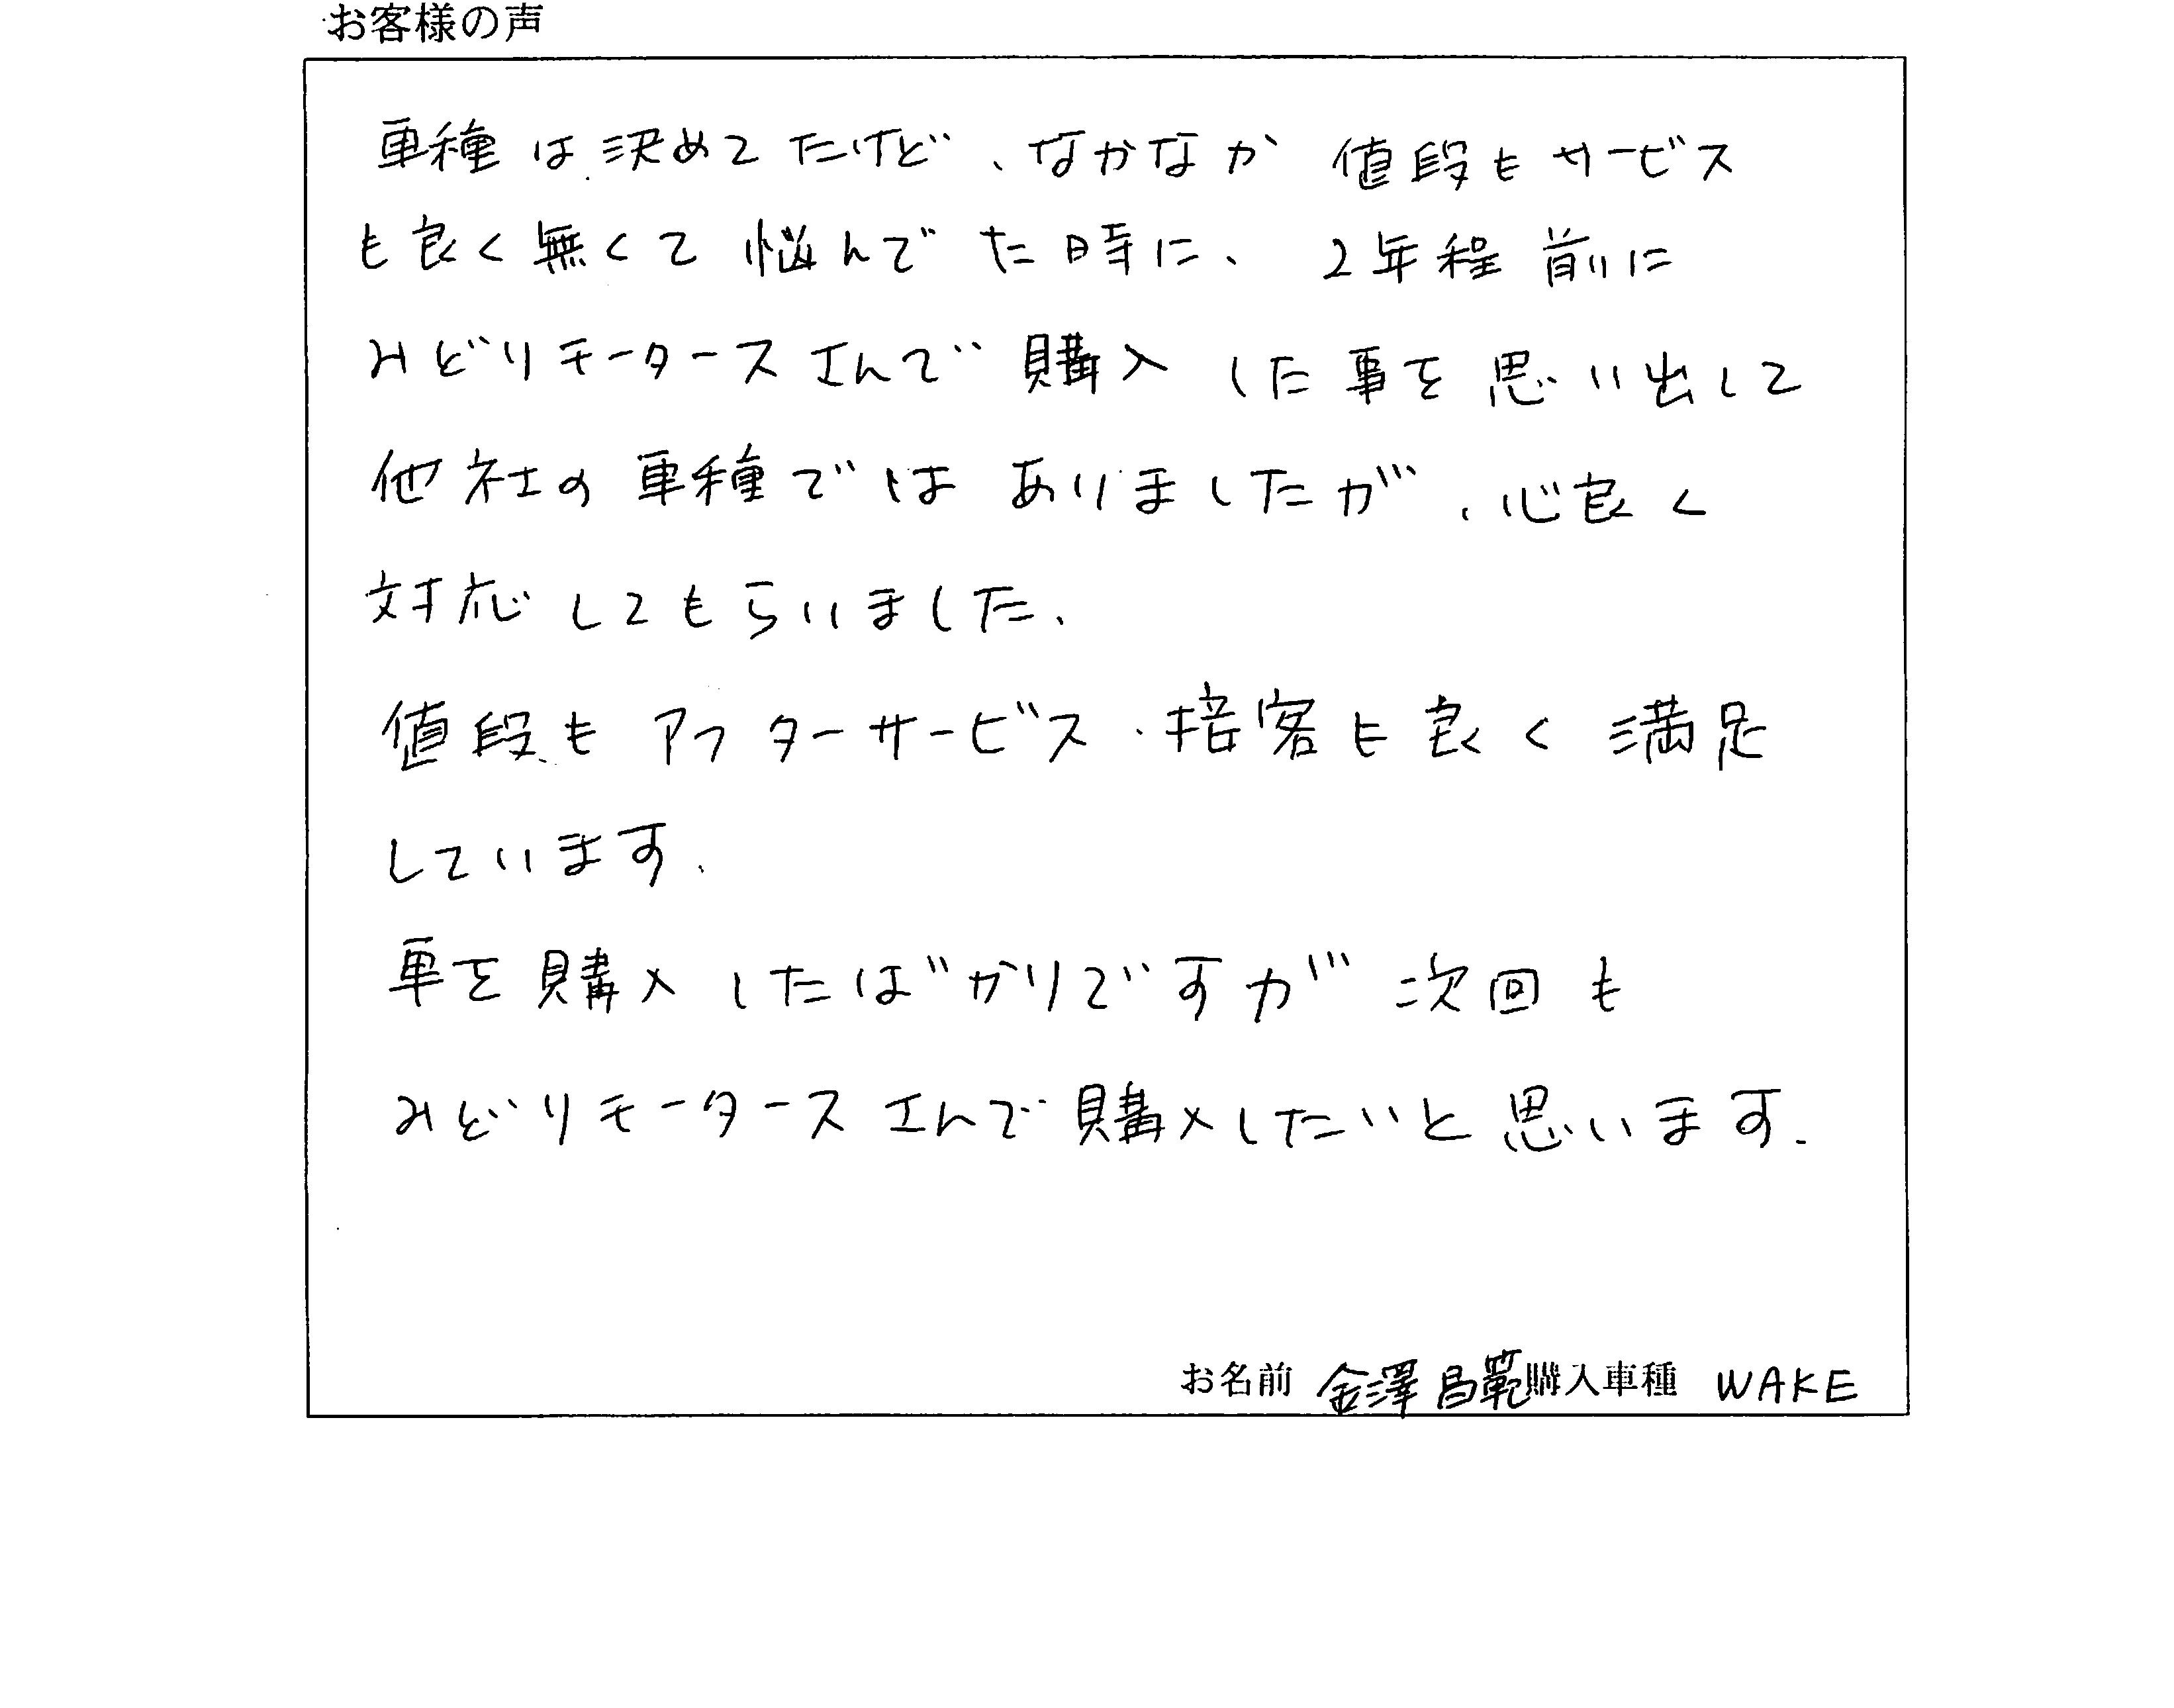 お客様の声
車種は決めてたけど、なかなか値段もサービス
も良く無くて悩んでた時に、2年程前に
みどりモータースさんで購入した事を思い出して
他社の車種ではありましたが、心良く
対応してもらいました、
値段もアフターサービス・接客も良く満足
しています、
車を購入したばかりですが次回も
みどりモータースさんで購入したいと思います.
お名前 金澤昌範 購入車種 WAKE